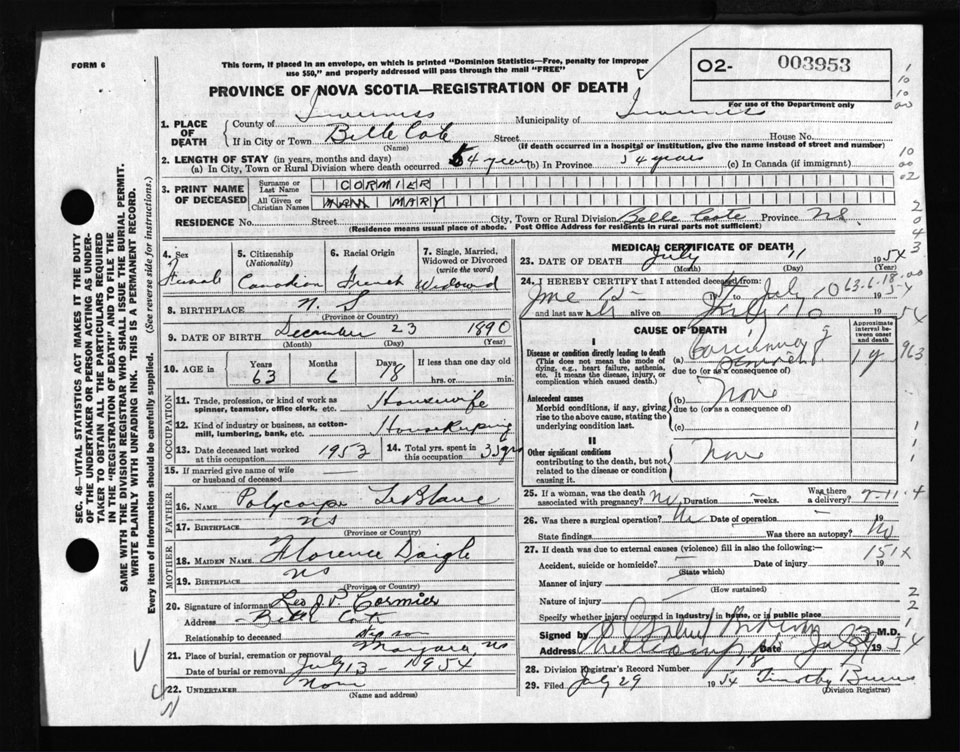 FORM 6
This form, if placed in an envelope, on which is printed "Dominion Statistics—Free, penalty for improper
use $50," and properly addressed will pass through the mail "FREE"
O2- 003953
For use of the Department only
PROVINCE OF NOVA SCOTIA—REGISTRATION OF DEATH
1. PLACE OF DEATH
County of Inverness Municipality of Inverness
If in City or Town Belle Cote Street House No.
(Name) (If death occurred in a hospital or institution, give the name instead of street and number)
2. LENGTH OF STAY (in years, months and days)
(a) In City, Town or Rural Division where death occurred 54 years (b) In Province 54 years (c) In Canada (if immigrant)
3. PRINT NAME OF DECEASED
Surname or Last Name CORMIER
All Given or Christian Names MARY
RESIDENCE No. Street City, Town or Rural Division Belle Cote Province NS
(Residence means usual place of abode. Post Office Address for residents in rural parts not sufficient)
4. Sex Female
5. Citizenship (Nationality) Canadian
6. Racial Origin French
7. Single, Married, Widowed or Divorced (write the word) Widowed
8. BIRTHPLACE N. S
(Province or Country)
9. DATE OF BIRTH December 23 1890
(Month) (Day) (Year)
10. AGE in Years 63 Months 6 Days 18 If less than one day
hrs. or min.
OCCUPATION
11. Trade, profession, or kind of work as spinner, teamster, office clerk, etc. Housewife
12. Kind of industry or business, as cotton-mill, lumbering, bank, etc. Housekeeping
13. Date deceased last worked at this occupation 1952
14. Total yrs. spent in this occupation 35 yrs
15. If married give name of wife or husband of deceased
FATHER
16. NAME Polycarpe LeBlanc
17. BIRTHPLACE NS
(Province or Country)
MOTHER
18. MAIDEN NAME Florence Daigle
19. BIRTHPLACE NS
(Province or Country)
20. Signature of informant Leo J. P. Cormier
Address Belle Cote
Relationship to deceased step son
21. Place of burial, cremation or removal Margaree NS
Date of burial or removal July 13 - 1954
22. UNDERTAKER None
(Name and address)
MEDICAL CERTIFICATE OF DEATH
23. DATE OF DEATH July 11 1954
(Month) (Day) (Year)
24. I HEREBY CERTIFY that I attended deceased from
19 to July 19 54
and last saw her alive on 19 54
63-6-18
CAUSE OF DEATH
Approximate interval between onset and death
I
Disease or condition directly leading to death (a) Carcinoma of Stomach 1 y
(This does not mean the mode of dying, e.g., heart failure, asthenia, etc. It means the disease, injury, or complication which caused death.)
due to (or as a consequence of)
Antecedent causes
Morbid conditions, if any, giving rise to the above cause, stating the underlying condition last.
(b) None
due to (or as a consequence of)
(c)
II
Other significant conditions None
contributing to the death, but not related to the disease or condition causing it.
25. If a woman, was the death associated with pregnancy? No Duration weeks. Was there a delivery?
26. Was there a surgical operation? No Date of operation 19
State findings Was there an autopsy? No
151X
27. If death was due to external causes (violence) fill in also the following:—
Accident, suicide or homicide? Date of injury 19
(State which)
Manner of injury
(How sustained)
Nature of injury
Specify whether injury occurred in industry, in home, or in public place
Signed by M.D.
Address Date 19 54
28. Division Registrar's Record Number 18
29. Filed July 29 1954
(Division Registrar)
SEC. 46—VITAL STATISTICS ACT MAKES IT THE DUTY
OF THE UNDERTAKER OR PERSON ACTING AS UNDER-
TAKER TO OBTAIN ALL THE PARTICULARS REQUIRED
IN THE "REGISTRATION OF DEATH" AND TO FILE THE
SAME WITH THE DIVISION REGISTRAR WHO SHALL ISSUE THE BURIAL PERMIT.
WRITE PLAINLY WITH UNFADING INK. THIS IS A PERMANENT RECORD.
Every item of information should be carefully supplied. (See reverse side for instructions.)